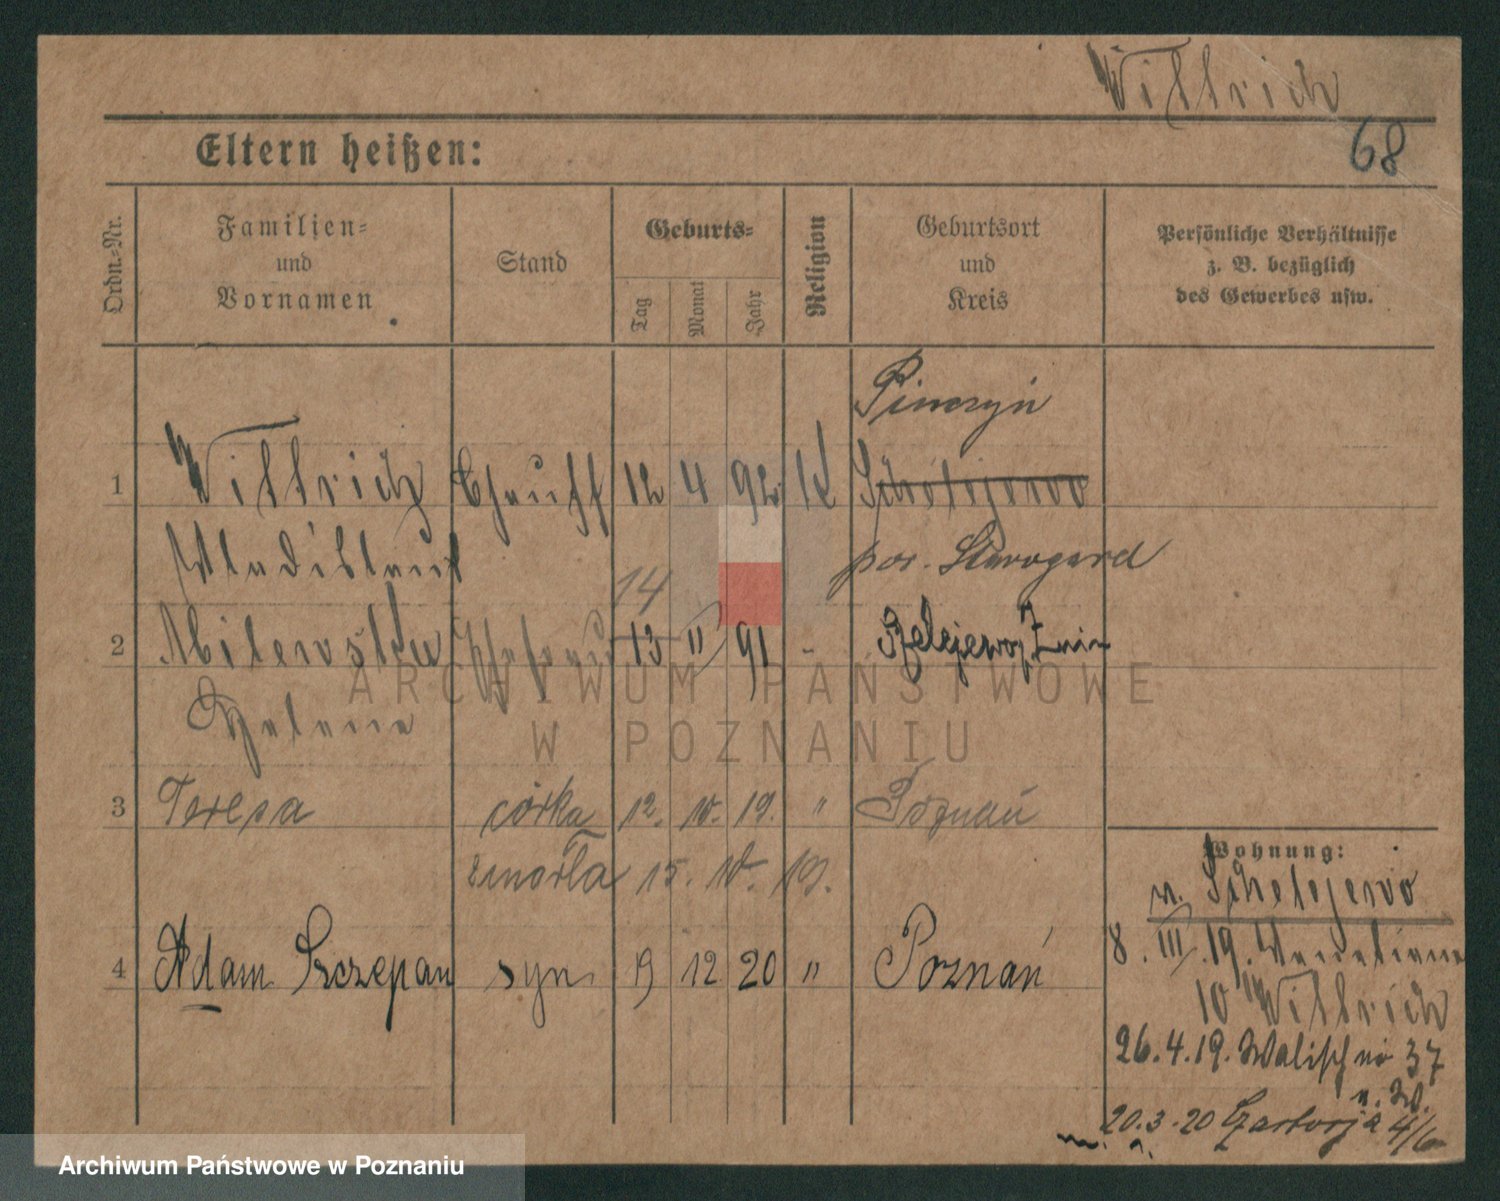 Wittrich
68
Eltern heißen:
Ordn.-Nr.
Familien-
und
Vornamen
Stand
Geburts-
Tag
Monat
Jahr
Religion
Geburtsort
und
Kreis
Persönliche Verhältnisse
z. B. bezüglich
des Gewerbes usw.
Pinczyn
1 Wittrich 12 4 92 K
Wladislaus
pow. Starogard
14
2 Milewska 13 11 91
Helene
3 Teresa córka 12. 10. 19. " Poznań
zmarła 15. 10. 19.
4 Adam Szczepan syn 19 12 20 " Poznań
Wohnung:
8. III. 19.
10 Wittrich
26. 4. 19. Walisch 37
20.3.20 4/6
ARCHIWUM PAŃSTWOWE
W POZNANIU
Archiwum Państwowe w Poznaniu